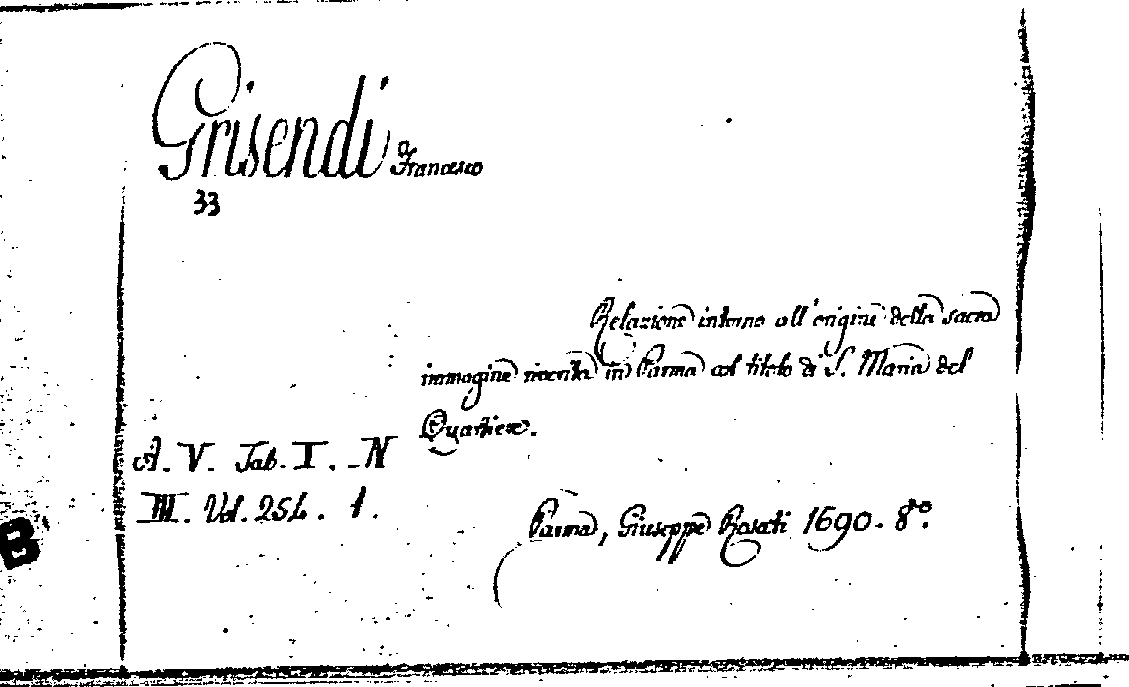 Grisendi Francesco
33
Relazione intorno all'origine della sacra
immagine riverita in Parma col titolo di S. Maria del
Quartiere.
A. V. Tab. I. N
III. Vol. 254. 1.
Parma, Giuseppe Rosati 1690. 8°.
B